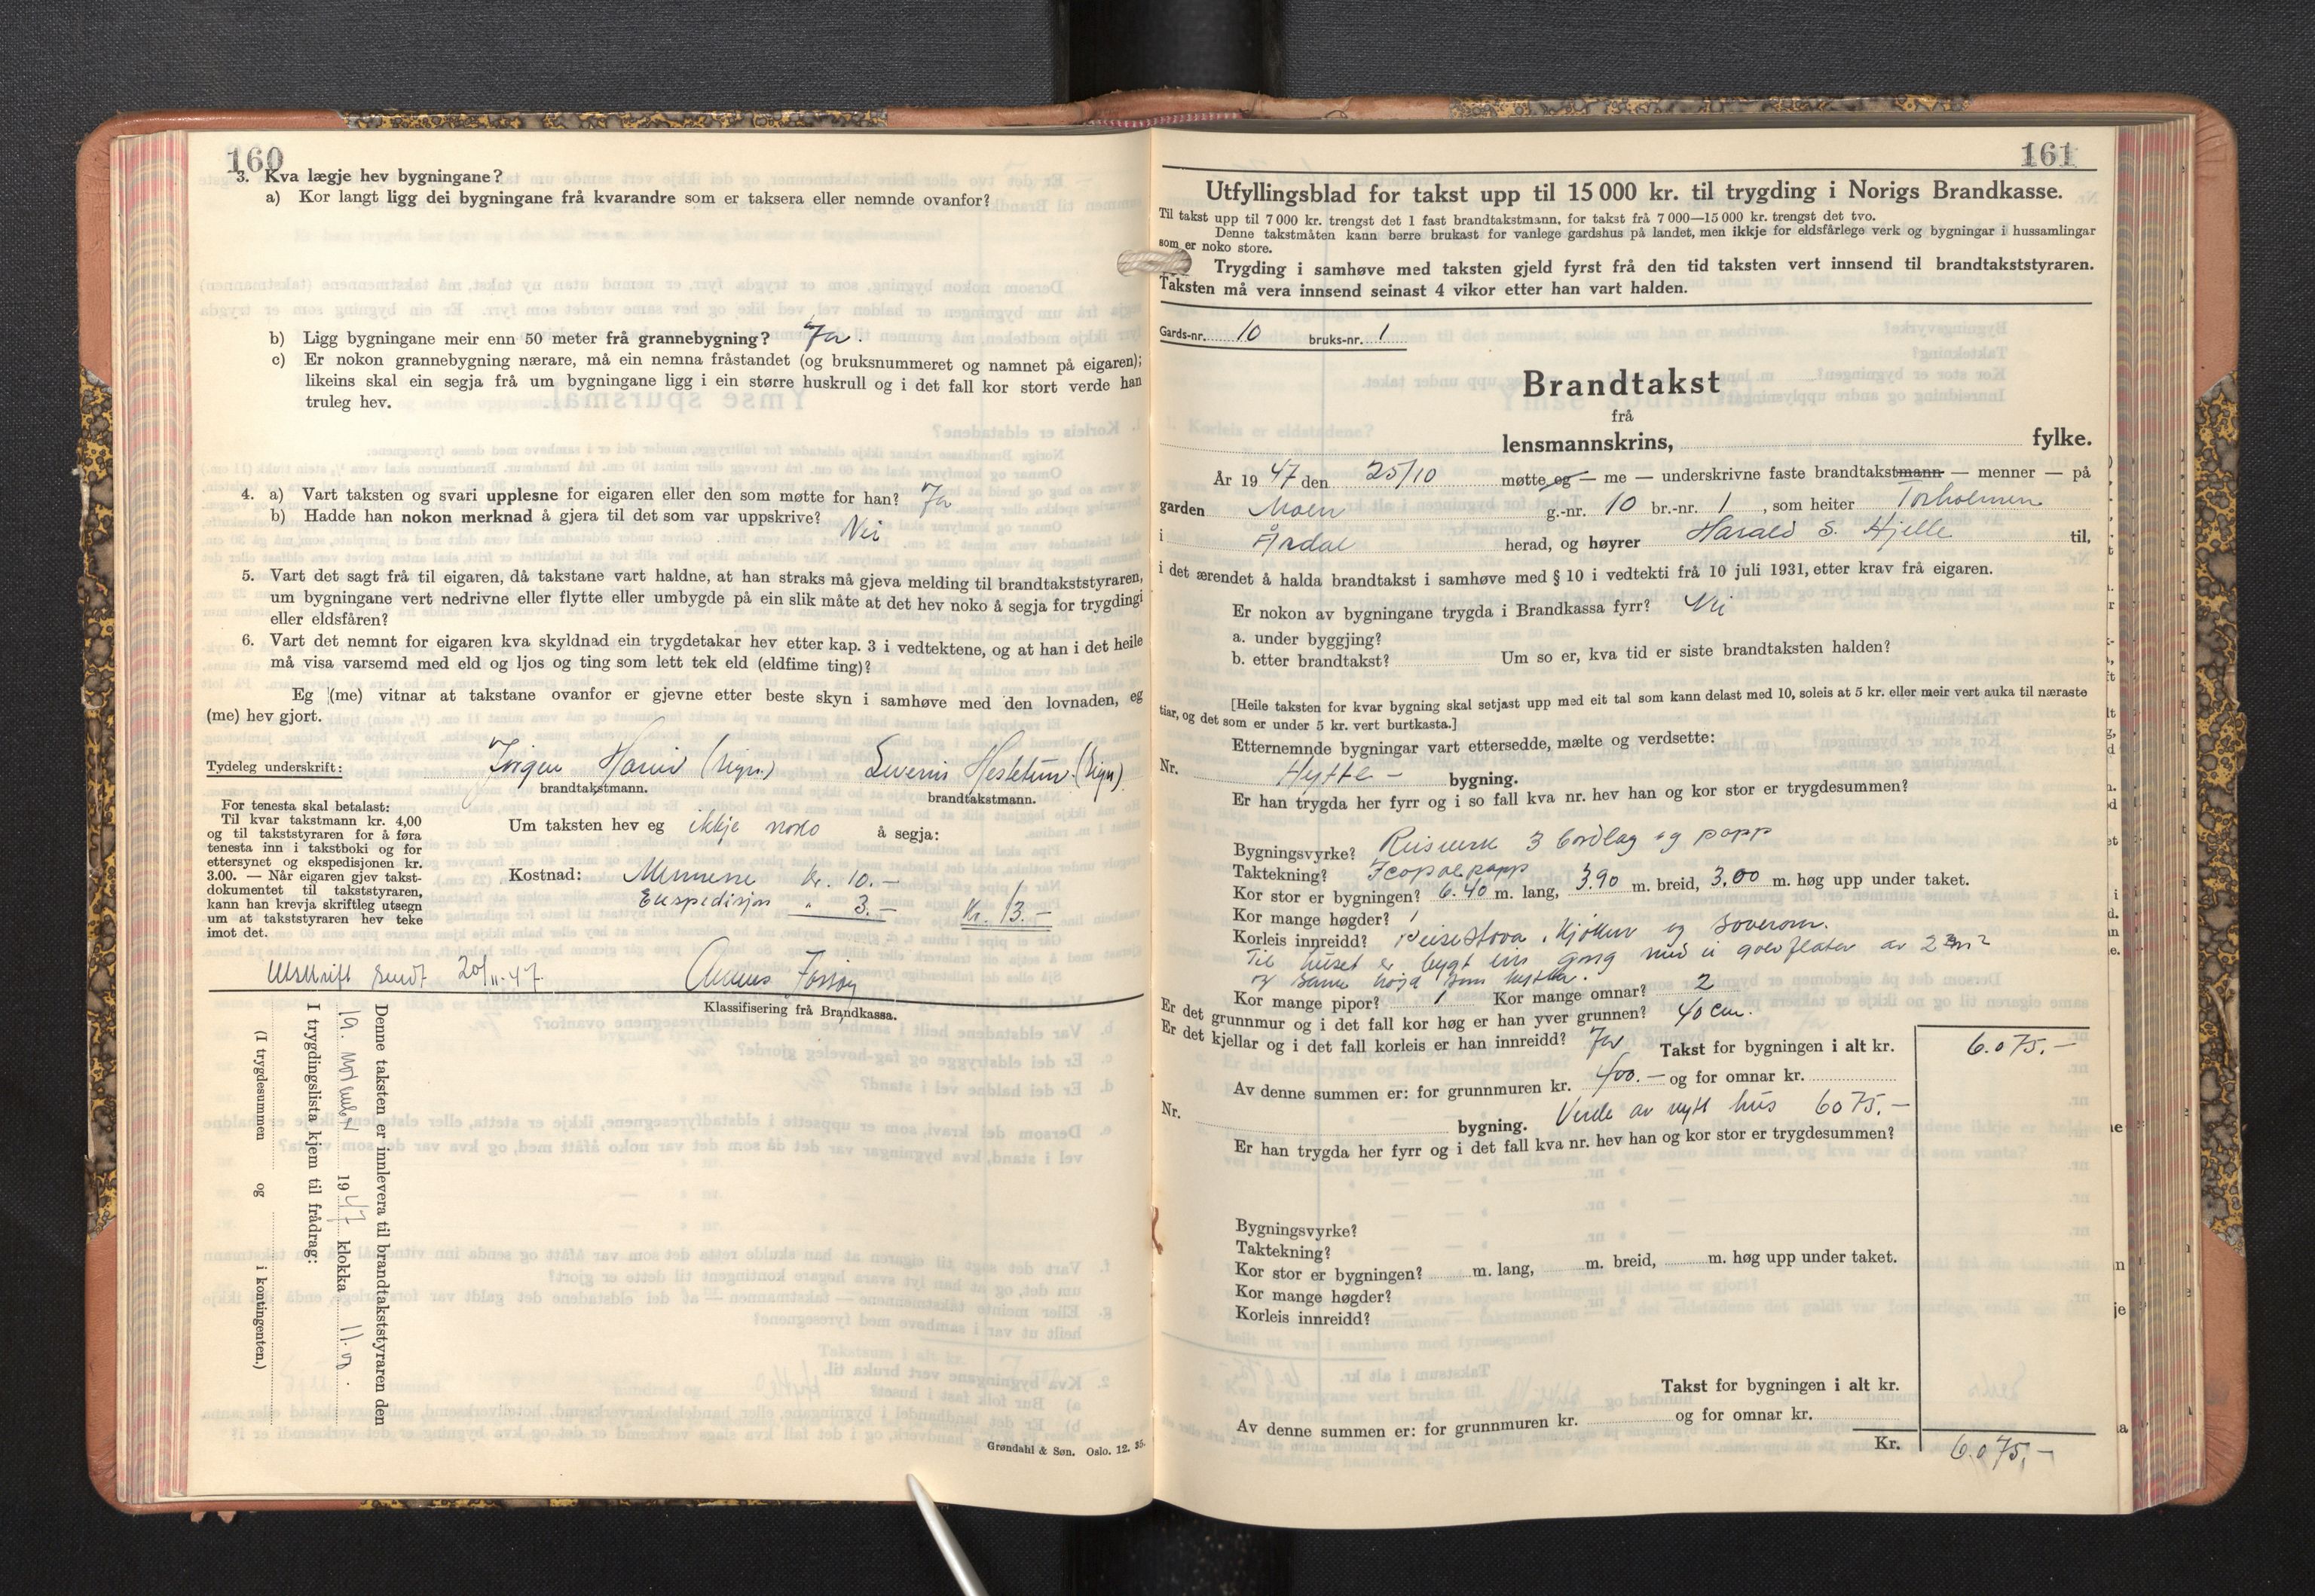 160
3. Kva lægje hev bygningane?
a) Kor langt ligg dei bygningane frå kvarandre som er taksera eller nemnde ovanfor?
b) Ligg bygningane meir enn 50 meter frå grannebygning? Ja.
c) Er nokon grannebygning nærare, må ein nemna fråstandet (og bruksnummeret og namnet på eigaren);
likeins skal ein segja frå um bygningane ligg i ein større huskrull og i det fall kor stort verde han
truleg hev.
4. a) Vart taksten og svari upplesne for eigaren eller den som møtte for han? Ja
b) Hadde han nokon merknad å gjera til det som var uppskrive? Nei
5. Vart det sagt frå til eigaren, då takstane vart haldne, at han straks må gjeva melding til brandtakststyraren,
um bygningane vert nedrivne eller flytte eller umbygde på ein slik måte at det hev noko å segja for trygdingi
eller eldsfåren?
6. Vart det nemnt for eigaren kva skyldnad ein trygdetakar hev etter kap. 3 i vedtektene, og at han i det heile
må visa varsemd med eld og ljos og ting som lett tek eld (eldfime ting)?
Eg (me) vitnar at takstane ovanfor er gjevne etter beste skyn i samhøve med den lovnaden, eg
(me) hev gjort.
Tydeleg underskrift: Jørgen (sign.) Severin Hestetun (sign)
brandtakstmann. brandtakstmann.
For tenesta skal betalast:
Til kvar takstmann kr. 4,00
og til takststyraren for å føra
tenesta inn i takstboki og for
ettersynet og ekspedisjonen kr.
3.00. — Når eigaren gjev takst-
dokumentet til takststyraren,
kann han krevja skriftleg utsegn
um at takststyraren hev teke
imot det.
Um taksten hev eg ikkje noko å segja:
Kostnad: Mennene kr. 10.—
Ekspedisjon " 3.— Kr. 13.—
Utskrift sendt 20/11-47.
Klassifisering frå Brandkassa.
Denne taksten er innlevera til brandtakststyraren den
19. november 1947 klokka 11.00.
I trygdingslista kjem til frådrag:
(I trygdesummen og i kontingenten.)
Grøndahl & Søn. Oslo. 12. 35.
161
Utfyllingsblad for takst upp til 15 000 kr. til trygding i Norigs Brandkasse.
Til takst upp til 7 000 kr. trengst det 1 fast brandtakstmann, for takst frå 7 000—15 000 kr. trengst det tvo.
Denne takstmåten kann berre brukast for vanlege gardshus på landet, men ikkje for eldsfårlege verk og bygningar i hussamlingar
som er noko store.
Trygding i samhøve med taksten gjeld fyrst frå den tid taksten vert innsend til brandtakststyraren.
Taksten må vera innsend seinast 4 vikor etter han vart halden.
Gards-nr. 10 bruks-nr. 1
Brandtakst
frå
lensmannskrins, fylke.
År 1947 den 25/10 møtte eg — me — underskrivne faste brandtakstmann — menner — på
garden Moen g.-nr. 10 br.-nr. 1, som heiter Torholmen
i Årdal herad, og høyrer Harald S. Hjelle til,
i det ærendet å halda brandtakst i samhøve med § 10 i vedtekti frå 10 juli 1931, etter krav frå eigaren.
Er nokon av bygningane trygda i Brandkassa fyrr? Nei
a. under byggjing?
b. etter brandtakst? Um so er, kva tid er siste brandtaksten halden?
[Heile taksten for kvar bygning skal setjast upp med eit tal som kann delast med 10, soleis at 5 kr. eller meir vert auka til næraste
tiar, og det som er under 5 kr. vert burtkasta.]
Etternemnde bygningar vart ettersedde, mælte og verdsette:
Nr. Hytte - bygning.
Er han trygda her fyrr og i so fall kva nr. hev han og kor stor er trygdesummen?
Bygningsvyrke? Reisverk 3 bordlag og papp
Taktekning? Icopalpapp
Kor stor er bygningen? 6.40 m. lang, 3.90 m. breid, 3.00 m. høg upp under taket.
Kor mange høgder? 1
Korleis innreidd? Peisestova, kjøken og soverom.
Til huset er bygt ein gang med ei golvflater av 2 m²
og same høgd som hytta.
Kor mange pipor? 1 Kor mange omnar? 2
Er det grunnmur og i det fall kor høg er han yver grunnen? 40 cm.
Er det kjellar og i det fall korleis er han innreidd? Ja Takst for bygningen i alt kr. 6.075.—
Av denne summen er: for grunnmuren kr. 400.— og for omnar kr.
Nr. bygning. Verde av nytt hus 6075.—
Er han trygda her fyrr og i det fall kva nr. hev han og kor stor er trygdesummen?
Bygningsvyrke?
Taktekning?
Kor stor er bygningen? m. lang, m. breid, m. høg upp under taket.
Kor mange høgder?
Korleis innreidd?
Takst for bygningen i alt kr.
Av denne summen er: for grunnmuren kr. og for omnar kr.
Kr. 6.075,—